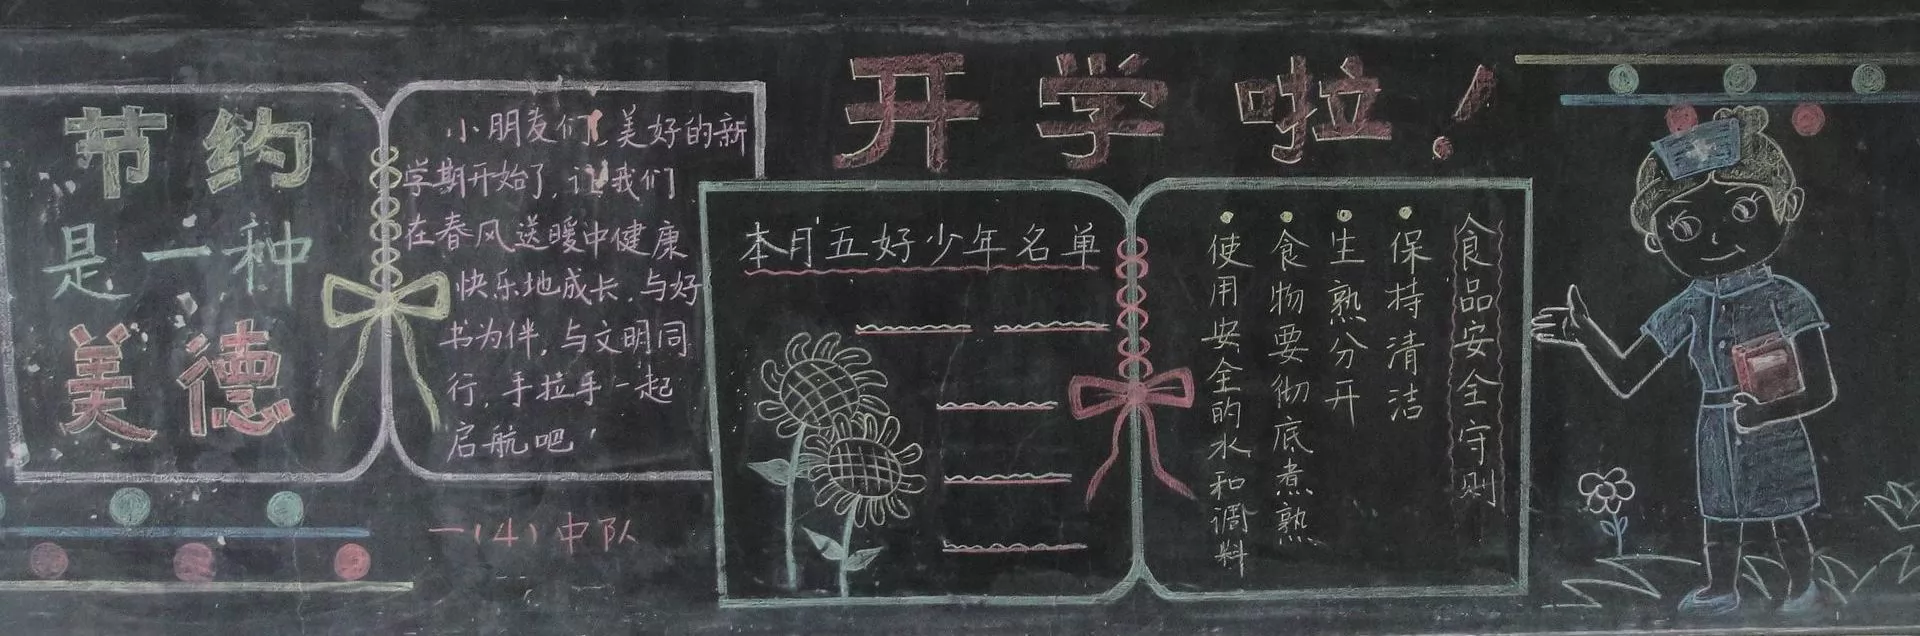 开学啦！
节约
是一种
美德
小朋友们，美好的新
学期开始了，让我们
在春风送暖中健康
快乐地成长，与好
书为伴，与文明同
行，手拉手一起
启航吧！
一(4)中队
本月五好少年名单
食品安全守则
保持清洁
生熟分开
食物要彻底煮熟
使用安全的水和调料